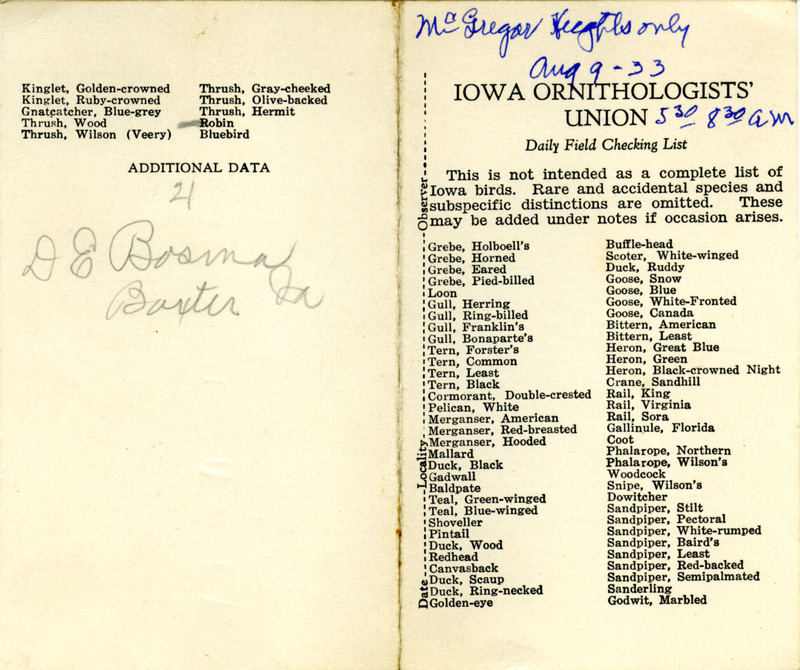 Kinglet, Golden-crowned
Kinglet, Ruby-crowned
Gnatcatcher, Blue-grey
Thrush, Wood
Thrush, Wilson (Veery)
Thrush, Gray-cheeked
Thrush, Olive-backed
Thrush, Hermit
Robin
Bluebird
ADDITIONAL DATA
21
D E Bosma
Baxter Ia
McGregor Heights only
Aug 9-33
IOWA ORNITHOLOGISTS'
UNION 5 30 8 30 a.m
Daily Field Checking List
This is not intended as a complete list of
Iowa birds. Rare and accidental species and
subspecific distinctions are omitted. These
may be added under notes if occasion arises.
Date Locality Observer
Grebe, Holboell's
Grebe, Horned
Grebe, Eared
Grebe, Pied-billed
Loon
Gull, Herring
Gull, Ring-billed
Gull, Franklin's
Gull, Bonaparte's
Tern, Forster's
Tern, Common
Tern, Least
Tern, Black
Cormorant, Double-crested
Pelican, White
Merganser, American
Merganser, Red-breasted
Merganser, Hooded
Mallard
Duck, Black
Gadwall
Baldpate
Teal, Green-winged
Teal, Blue-winged
Shoveller
Pintail
Duck, Wood
Redhead
Canvasback
Duck, Scaup
Duck, Ring-necked
Golden-eye
Buffle-head
Scoter, White-winged
Duck, Ruddy
Goose, Snow
Goose, Blue
Goose, White-Fronted
Goose, Canada
Bittern, American
Bittern, Least
Heron, Great Blue
Heron, Green
Heron, Black-crowned Night
Crane, Sandhill
Rail, King
Rail, Virginia
Rail, Sora
Gallinule, Florida
Coot
Phalarope, Northern
Phalarope, Wilson's
Woodcock
Snipe, Wilson's
Dowitcher
Sandpiper, Stilt
Sandpiper, Pectoral
Sandpiper, White-rumped
Sandpiper, Baird's
Sandpiper, Least
Sandpiper, Red-backed
Sandpiper, Semipalmated
Sanderling
Godwit, Marbled